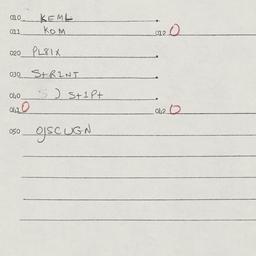 010 KEML
011 KOM 012 0
020 PLSIX
030 StRINT
040 S ) St1Pt
041 0 042 0
050 OJSCUGN